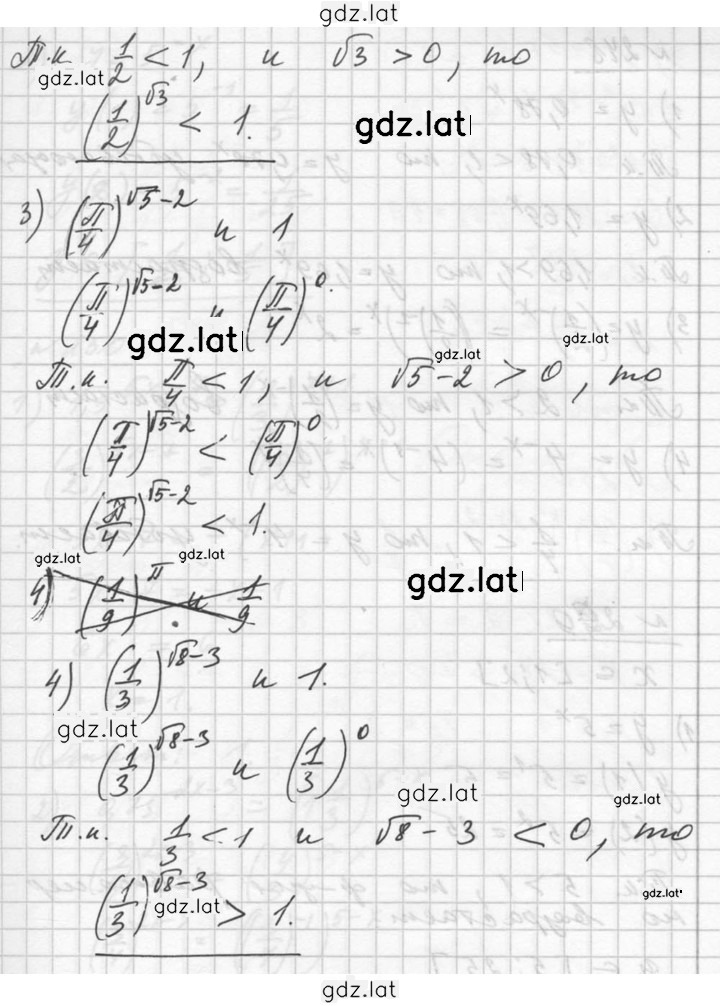 gdz.lat
Т.к. 1/2 < 1, и √3 > 0, то
gdz.lat
(1/2)^√3 < 1.
gdz.lat
3) (π/4)^(√5-2) и 1
(π/4)^(√5-2) и (π/4)^0.
gdz.lat
gdz.lat
gdz.lat
Т.к. π/4 < 1, и √5-2 > 0, то
(π/4)^(√5-2) < (π/4)^0
(π/4)^(√5-2) < 1.
gdz.lat
gdz.lat
gdz.lat
4) (1/9)^π и 1/9
4) (1/3)^(√8-3) и 1.
gdz.lat
(1/3)^(√8-3) и (1/3)^0
gdz.lat
gdz.lat
Т.к. 1/3 < 1 и √8-3 < 0, то
(1/3)^(√8-3) > 1.
gdz.lat
gdz.lat
gdz.lat